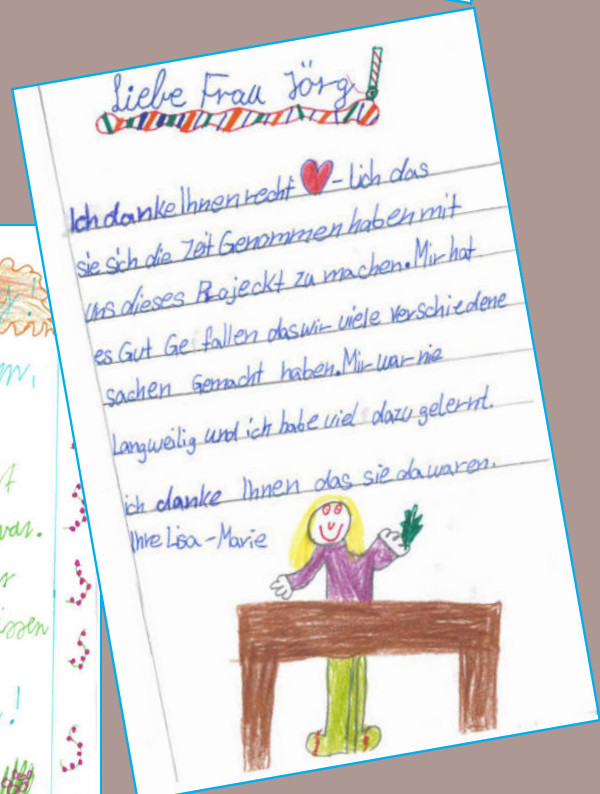 Liebe Frau Jörg
Ich danke Ihnen recht ❤-lich das
sie sich die Zeit Genommen haben mit
uns dieses Projeckt zu machen. Mir hat
es Gut Ge fallen das wir viele verschiedene
sachen Gemacht haben. Mir war nie
Langweilig und ich habe viel dazu gelernt.
ich danke Ihnen das sie da waren.
Ihre Lisa-Marie
var.
issen
!